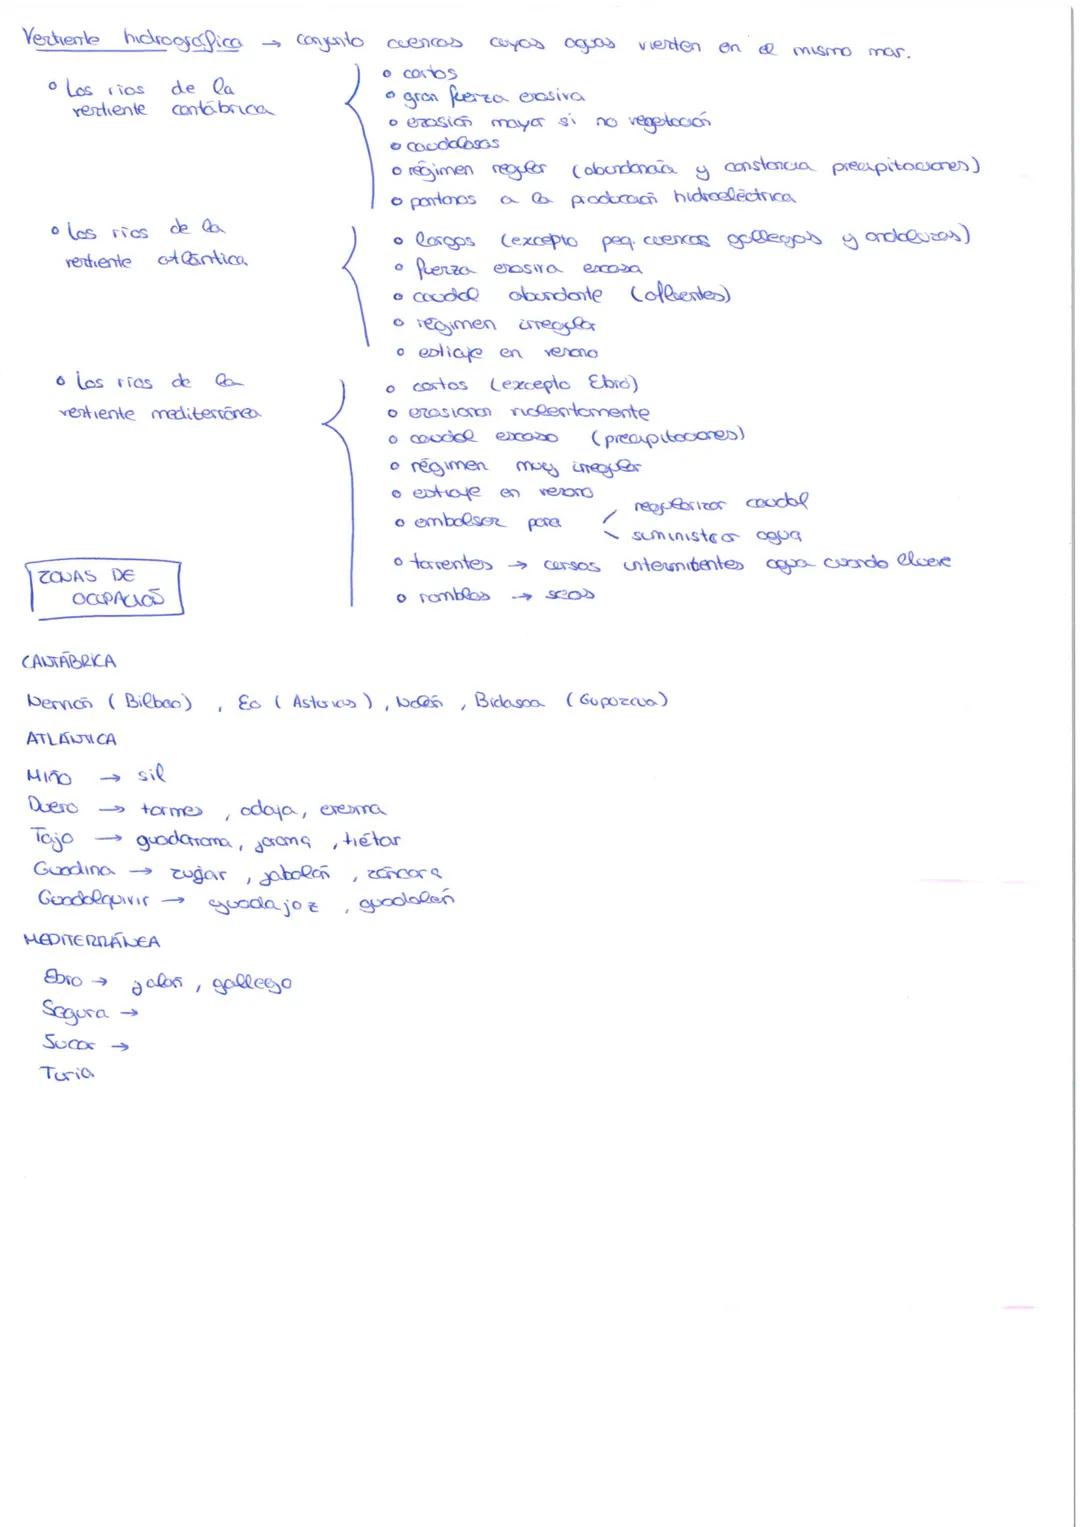 Vertiente hidrográfica → conjunto cuencas cuyas aguas vierten en el mismo mar.
o Los ríos de la vertiente cantábrica
o cortos
o gran fuerza erosiva
o erosión mayor si no vegetación
o caudalosos
o régimen regular (abundancia y constancia precipitaciones)
o pantanos a la producción hidroeléctrica
o Los ríos de la vertiente atlántica
o largos (excepto peq. cuencas gallegas y andaluzas)
o fuerza erosiva escasa
o caudal abundante (afluentes)
o régimen irregular
o estiaje en verano
o Los ríos de la vertiente mediterránea
o cortos (excepto Ebro)
o erosionan violentamente
o caudal escaso (precipitaciones)
o régimen muy irregular
o estiaje en verano
o embalsar para
regularizar caudal
suministrar agua
o torrentes → cursos intermitentes agua cuando llueve
o ramblas → secas
ZONAS DE
OCUPACIÓN
CANTÁBRICA
Nervión (Bilbao), Eo (Asturias), Nalón, Bidasoa (Gupozcua)
ATLÁNTICA
MIÑO → sil
Duero → tormes, adaja, eresma
Tajo → guadarrama, jarama, tiétar
Guadina → zujar, jabalón, záncara
Guadalquivir → guadajoz, guadalén
MEDITERRÁNEA
Ebro → jalón, gallego
Segura →
Jucar →
Turia